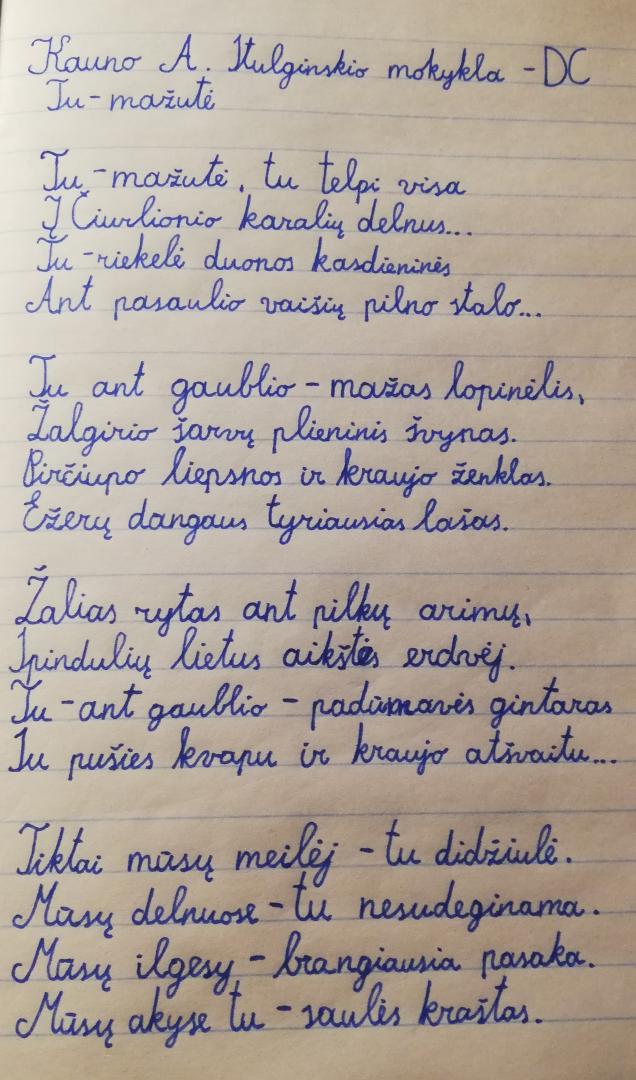 Kauno A. Stulginskio mokykla - DC
Tu - mažutė
Tu - mažutė, tu telpi visa
Į Čiurlionio karalių delnus...
Tu - riekelė duonos kasdieninės
Ant pasaulio vaišių pilno stalo...
Tu ant gaublio - mažas lopinėlis,
Žalgirio šarvų plieninis žvynas.
Pirčiupo liepsnos ir kraujo ženklas.
Ežerų dangaus tyriausias lašas.
Žalias rytas ant pilkų arimų,
Spindulių lietus aikštės erdvėj.
Tu - ant gaublio - padūmavės gintaras
Su pušies kvapu ir kraujo atšvaitu...
Tiktai mūsų meilėj - tu didžiulė.
Mūsų delnuose - tu nesudeginama.
Mūsų ilgesy - brangiausia pasaka.
Mūsų akyse tu - saulės kraštas.